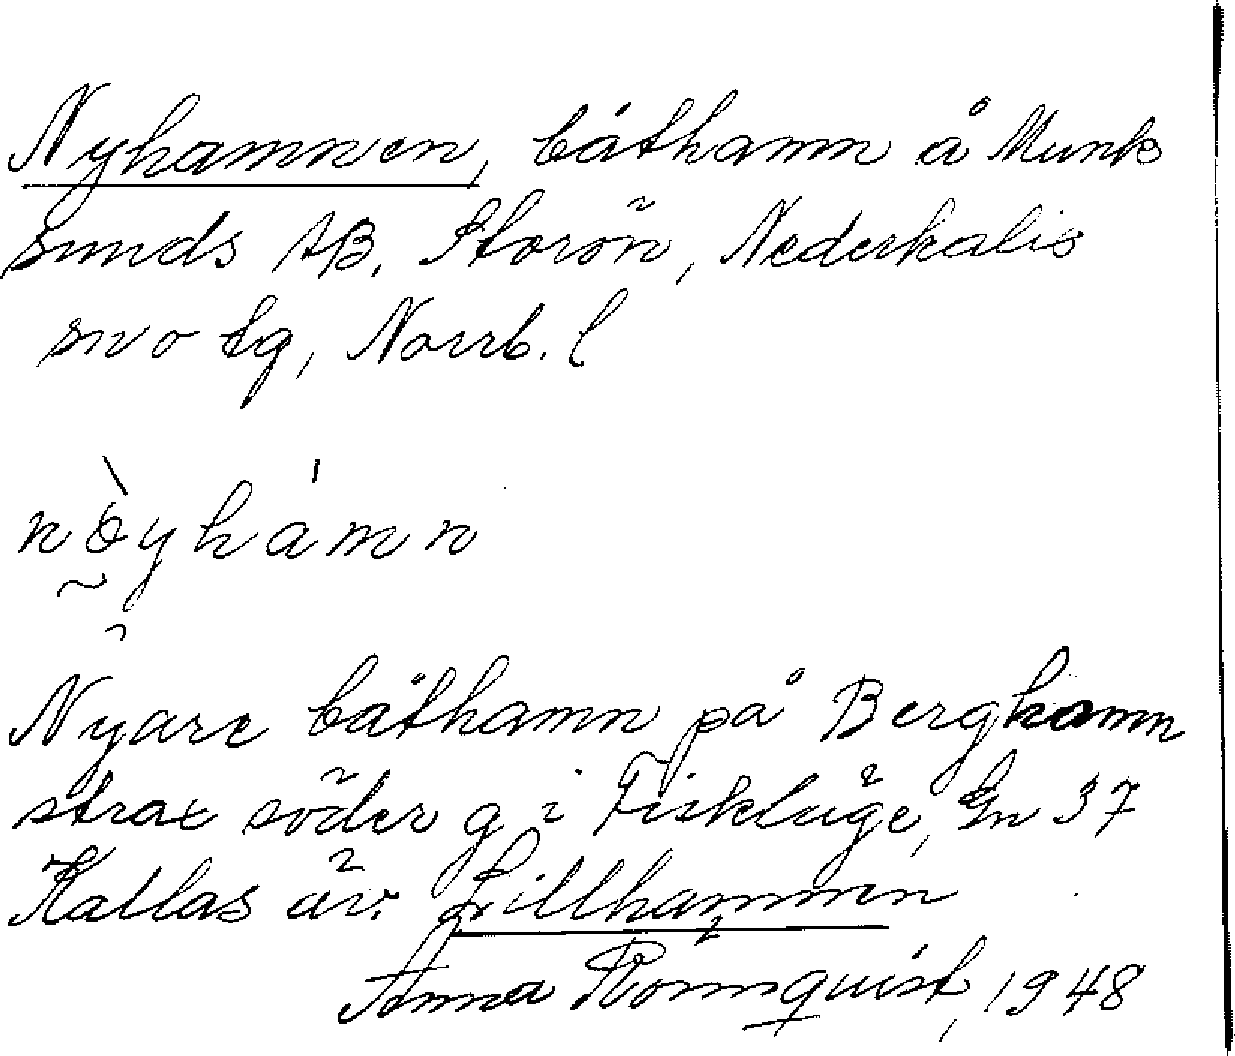 Nyhamnen, båthamn å Munk
sunds AB, Storön, Nederkalix
sn o tg, Norrb. l
nö̀yhámn
Nyare båthamn på Berghamn
strax söder g i Fiskläge, En 37
Kallas äv. Lillhamnen
Anna Ronnquist, 1948